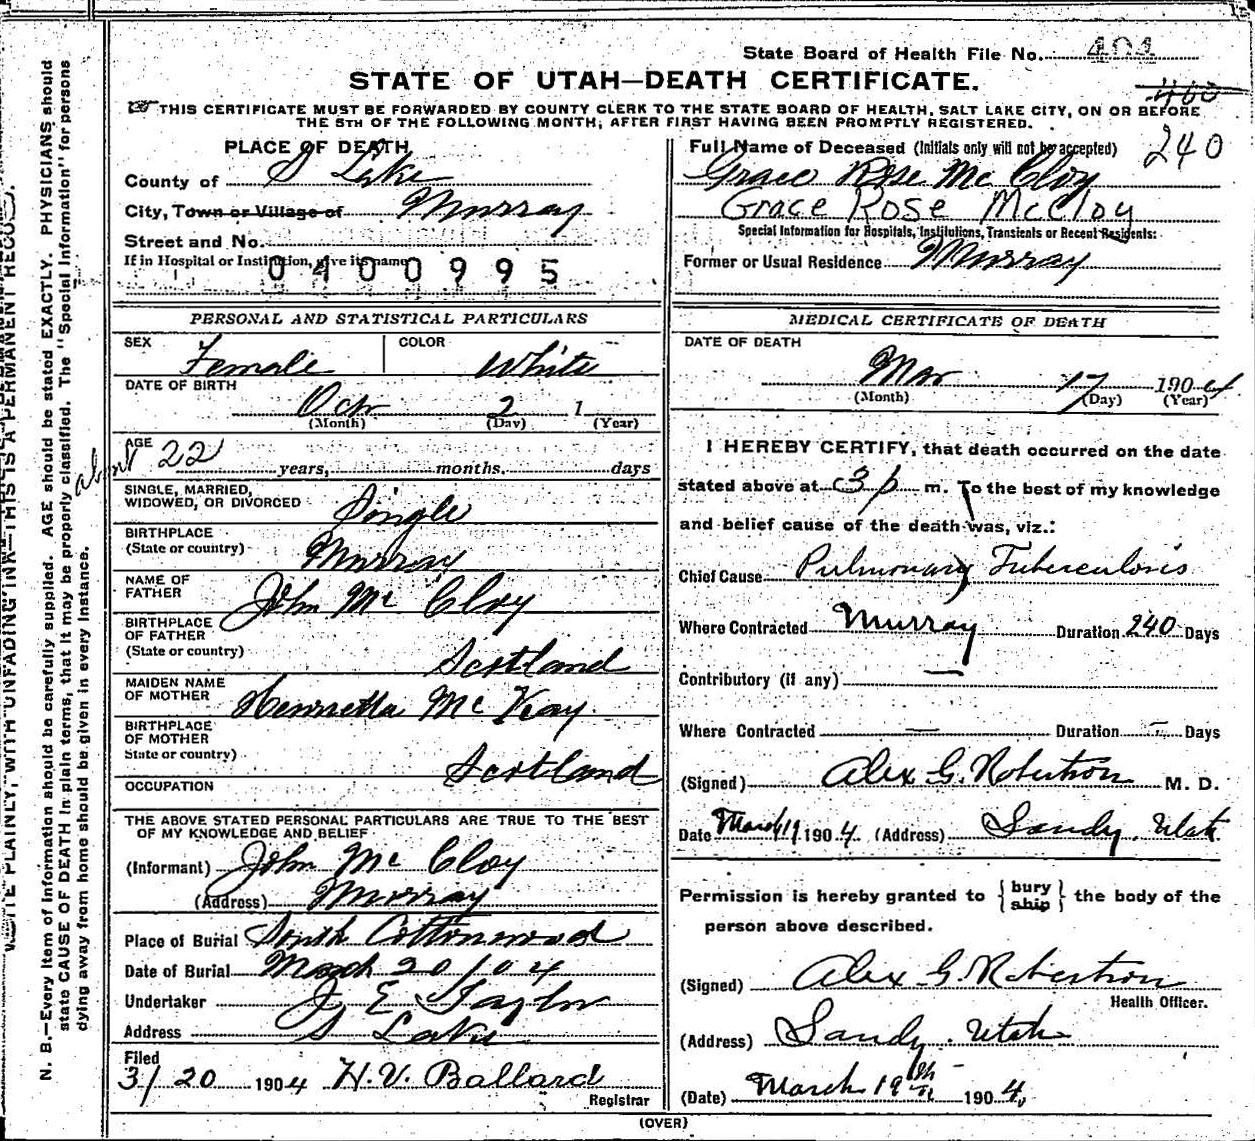 State Board of Health File No. 404
STATE OF UTAH—DEATH CERTIFICATE.
460
THIS CERTIFICATE MUST BE FORWARDED BY COUNTY CLERK TO THE STATE BOARD OF HEALTH, SALT LAKE CITY, ON OR BEFORE
THE 5TH OF THE FOLLOWING MONTH, AFTER FIRST HAVING BEEN PROMPTLY REGISTERED.
PLACE OF DEATH
County of S Lake
City, Town or Village of Murray
Street and No.
If in Hospital or Institution, give its name
0400995
Full Name of Deceased (Initials only will not be accepted) 240
Grace Rose Mc Cloy
Grace Rose McCloy
Special Information for Hospitals, Institutions, Transients or Recent Residents:
Former or Usual Residence Murray
PERSONAL AND STATISTICAL PARTICULARS
SEX Female COLOR White
DATE OF BIRTH
Oct 2 1
(Month) (Day) (Year)
AGE
about 22 years, months. days
SINGLE, MARRIED,
WIDOWED, OR DIVORCED Single
BIRTHPLACE
(State or country) Murray
NAME OF
FATHER John Mc Cloy
BIRTHPLACE
OF FATHER
(State or country) Scotland
MAIDEN NAME
OF MOTHER Henrietta Mc Kay.
BIRTHPLACE
OF MOTHER
State or country) Scotland
OCCUPATION
THE ABOVE STATED PERSONAL PARTICULARS ARE TRUE TO THE BEST
OF MY KNOWLEDGE AND BELIEF
(Informant) John Mc Cloy
(Address) Murray
Place of Burial South Cottonwood
Date of Burial March 20/04
Undertaker J E Taylor
Address S Lake
Filed
3/20 1904 H.V. Ballard
Registrar
MEDICAL CERTIFICATE OF DEATH
DATE OF DEATH
Mar 17 1904
(Month) (Day) (Year)
I HEREBY CERTIFY, that death occurred on the date
stated above at 3 p m. To the best of my knowledge
and belief cause of the death was, viz.:
Chief Cause Pulmonary Tuberculosis
Where Contracted Murray Duration 240 Days
Contributory (if any) —
Where Contracted — Duration — Days
(Signed) Alex G. Robertson M. D.
Date March 19 1904. (Address) Sandy. Utah.
Permission is hereby granted to { bury
ship } the body of the
person above described.
(Signed) Alex G. Robertson
Health Officer.
(Address) Sandy. Utah
(Date) March 19th 1904,
(OVER)
N. B.—Every item of information should be carefully supplied. AGE should be stated EXACTLY. PHYSICIANS should
state CAUSE OF DEATH in plain terms, that it may be properly classified. The "Special Information" for persons
dying away from home should be given in every instance.
PLAINLY, WITH UNFADING INK—THIS IS A PERMANENT RECORD.